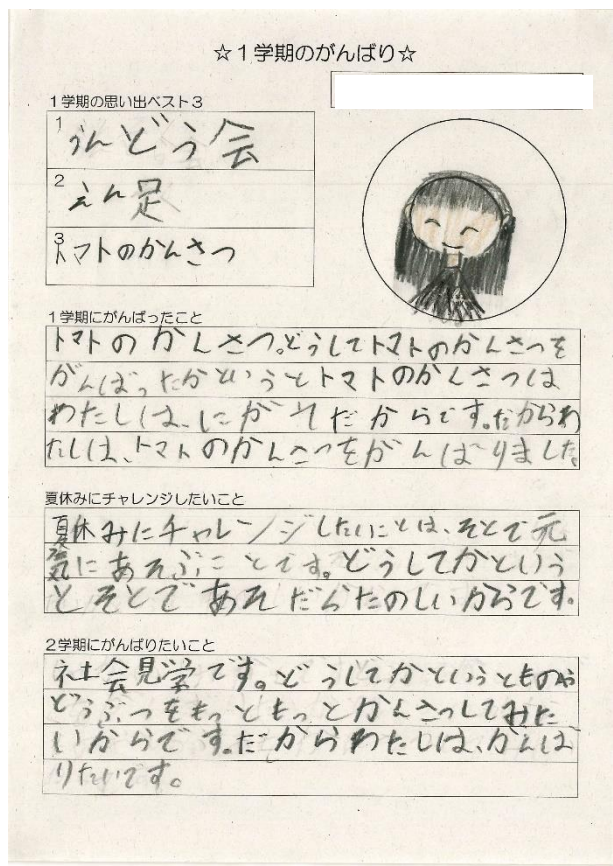 ☆1学期のがんばり☆
1学期の思い出ベスト3
1 うんどう会
2 えん足
3 トマトのかんさつ
1学期にがんばったこと
トマトのかんさつ。どうしてトマトのかんさつを
がんばったかというとトマトのかんさつは
わたしは、にがてだからです。だからわ
たしは、トマトのかんさつをがんばりました。
夏休みにチャレンジしたいこと
夏休みにチャレンジしたいことは、そとで元
気にあそぶことです。どうしてかという
とそとであそだらたのしいからです。
2学期にがんばりたいこと
社会見学です。どうしてかというとものや
どうぶつをもっともっとかんさつしてみた
いからです。だからわたしは、がんば
りたいです。